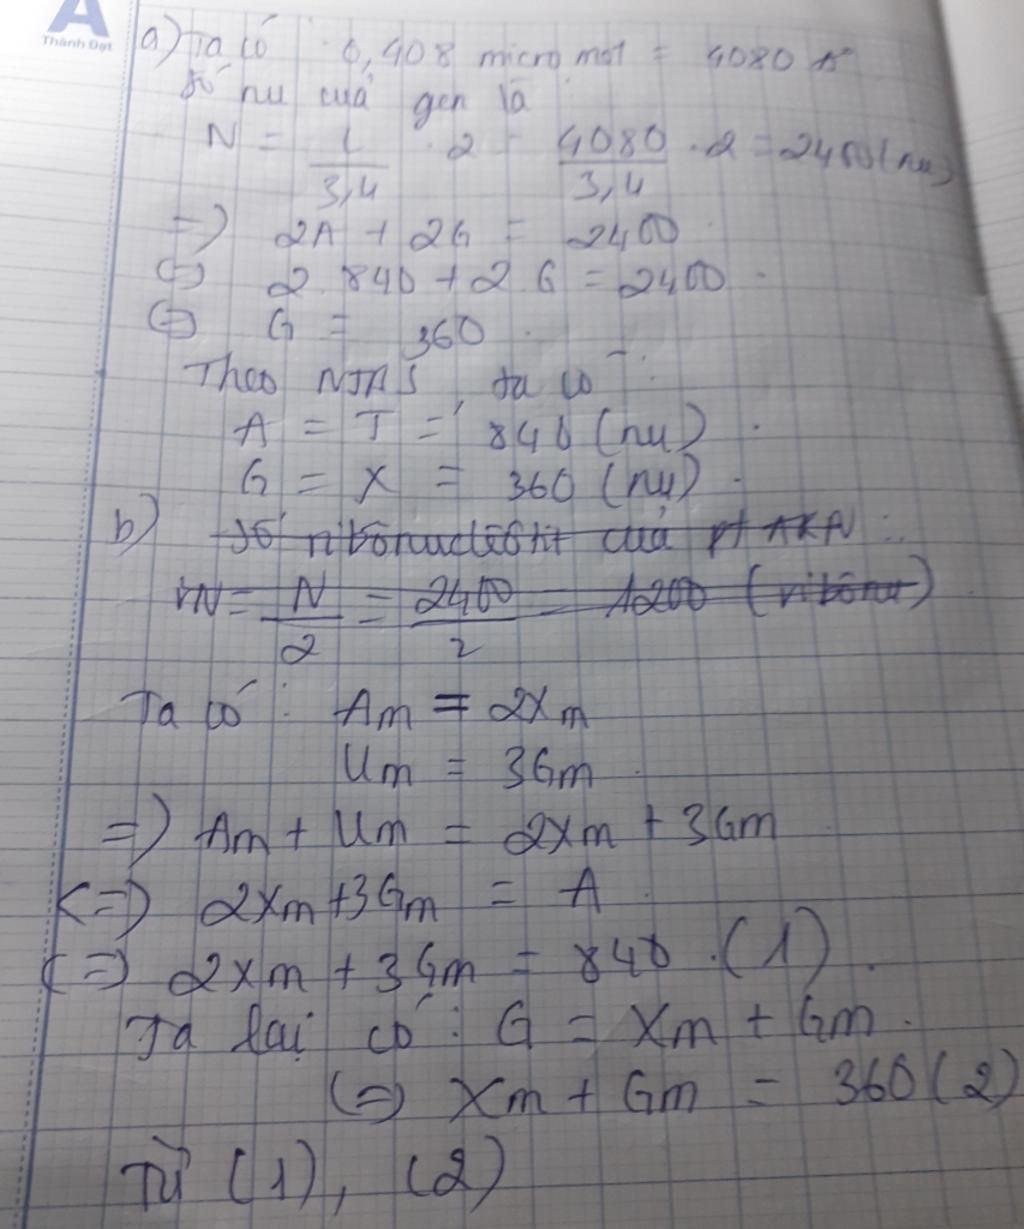 A
Thành Đạt
a) Ta có : 0,408 micro met = 4080 A°
Số nu của gen là
N = L/3,4 . 2 = 4080/3,4 . 2 = 2400 (nu)
=> 2A + 2G = 2400
<=> 2. 840 + 2 G = 2400
<=> G = 360
Theo NTBS, ta có :
A = T = 840 (nu)
G = X = 360 (nu)
b) Số ribonucleotit của pt ARN :
rN = N/2 = 2400/2 = 1200 (ribonu)
Ta có : Am = 2Xm
Um = 3Gm
=> Am + Um = 2Xm + 3Gm
<=> 2Xm + 3Gm = A
<=> 2Xm + 3Gm = 840 (1)
Ta lại có : G = Xm + Gm
<=> Xm + Gm = 360 (2)
Từ (1), (2)